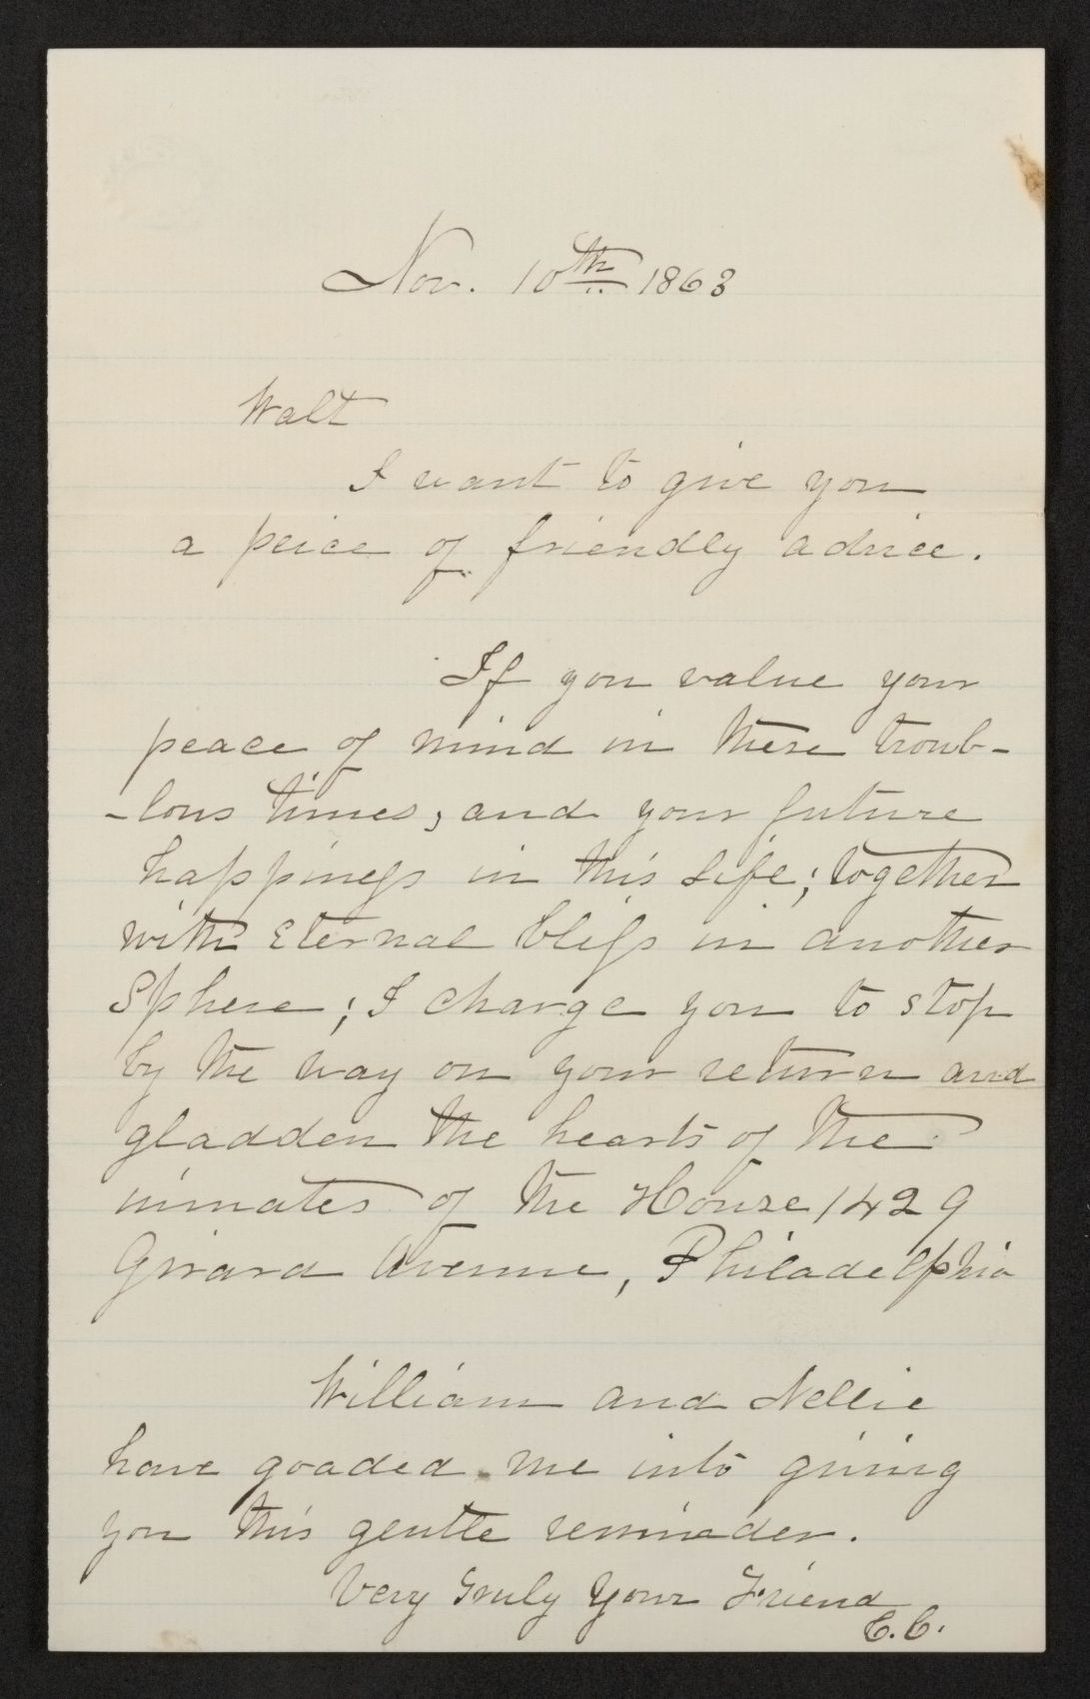 Nov. 10th 1863
Walt
I want to give you
a peice of friendly advice.
If you value your
peace of mind in these troub-
-lous times, and your future
happiness in this Life; together
with Eternal bliss in another
Sphere; I charge you to stop
by the way on your return and
gladden the hearts of the
inmates of the House 1429
Girard Avenue, Philadelphia
William and Nellie
have goaded me into giving
you this gentle reminder.
Very Truly Your Friend
C.C.